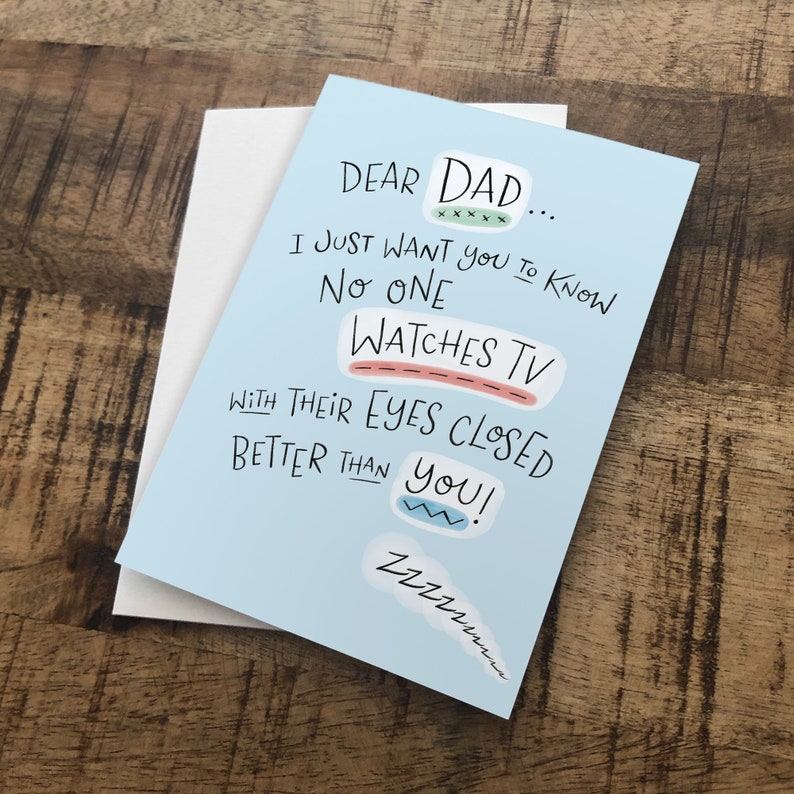 DEAR DAD...
I JUST WANT YOU TO KNOW
NO ONE
WATCHES TV
WITH THEIR EYES CLOSED
BETTER THAN YOU!
ZZZZZZZZZZZZ